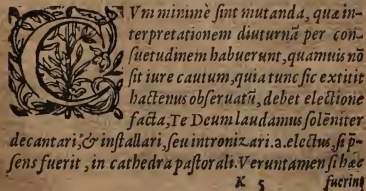 CVm minimè ſint mutanda, quæ in-
terpretationem diuturnã per con-
ſuetudinem habuerunt, quamuis nõ
ſit iure cautum, quia tunc ſic extitit
hactenus obſeruatũ, debet electione
facta, Te Deum laudamus ſolẽniter
decantari, & inſtallari, ſeu intronizari.a.electus, ſi p̃-
ſens fuerit, in cathedra paſtorali. Veruntamen ſi hæc
K 5 fuerint